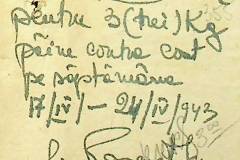 pentru 3 (trei) Kg
pâine contra cost
pe săptămâna
17/IV – 24/IV/943